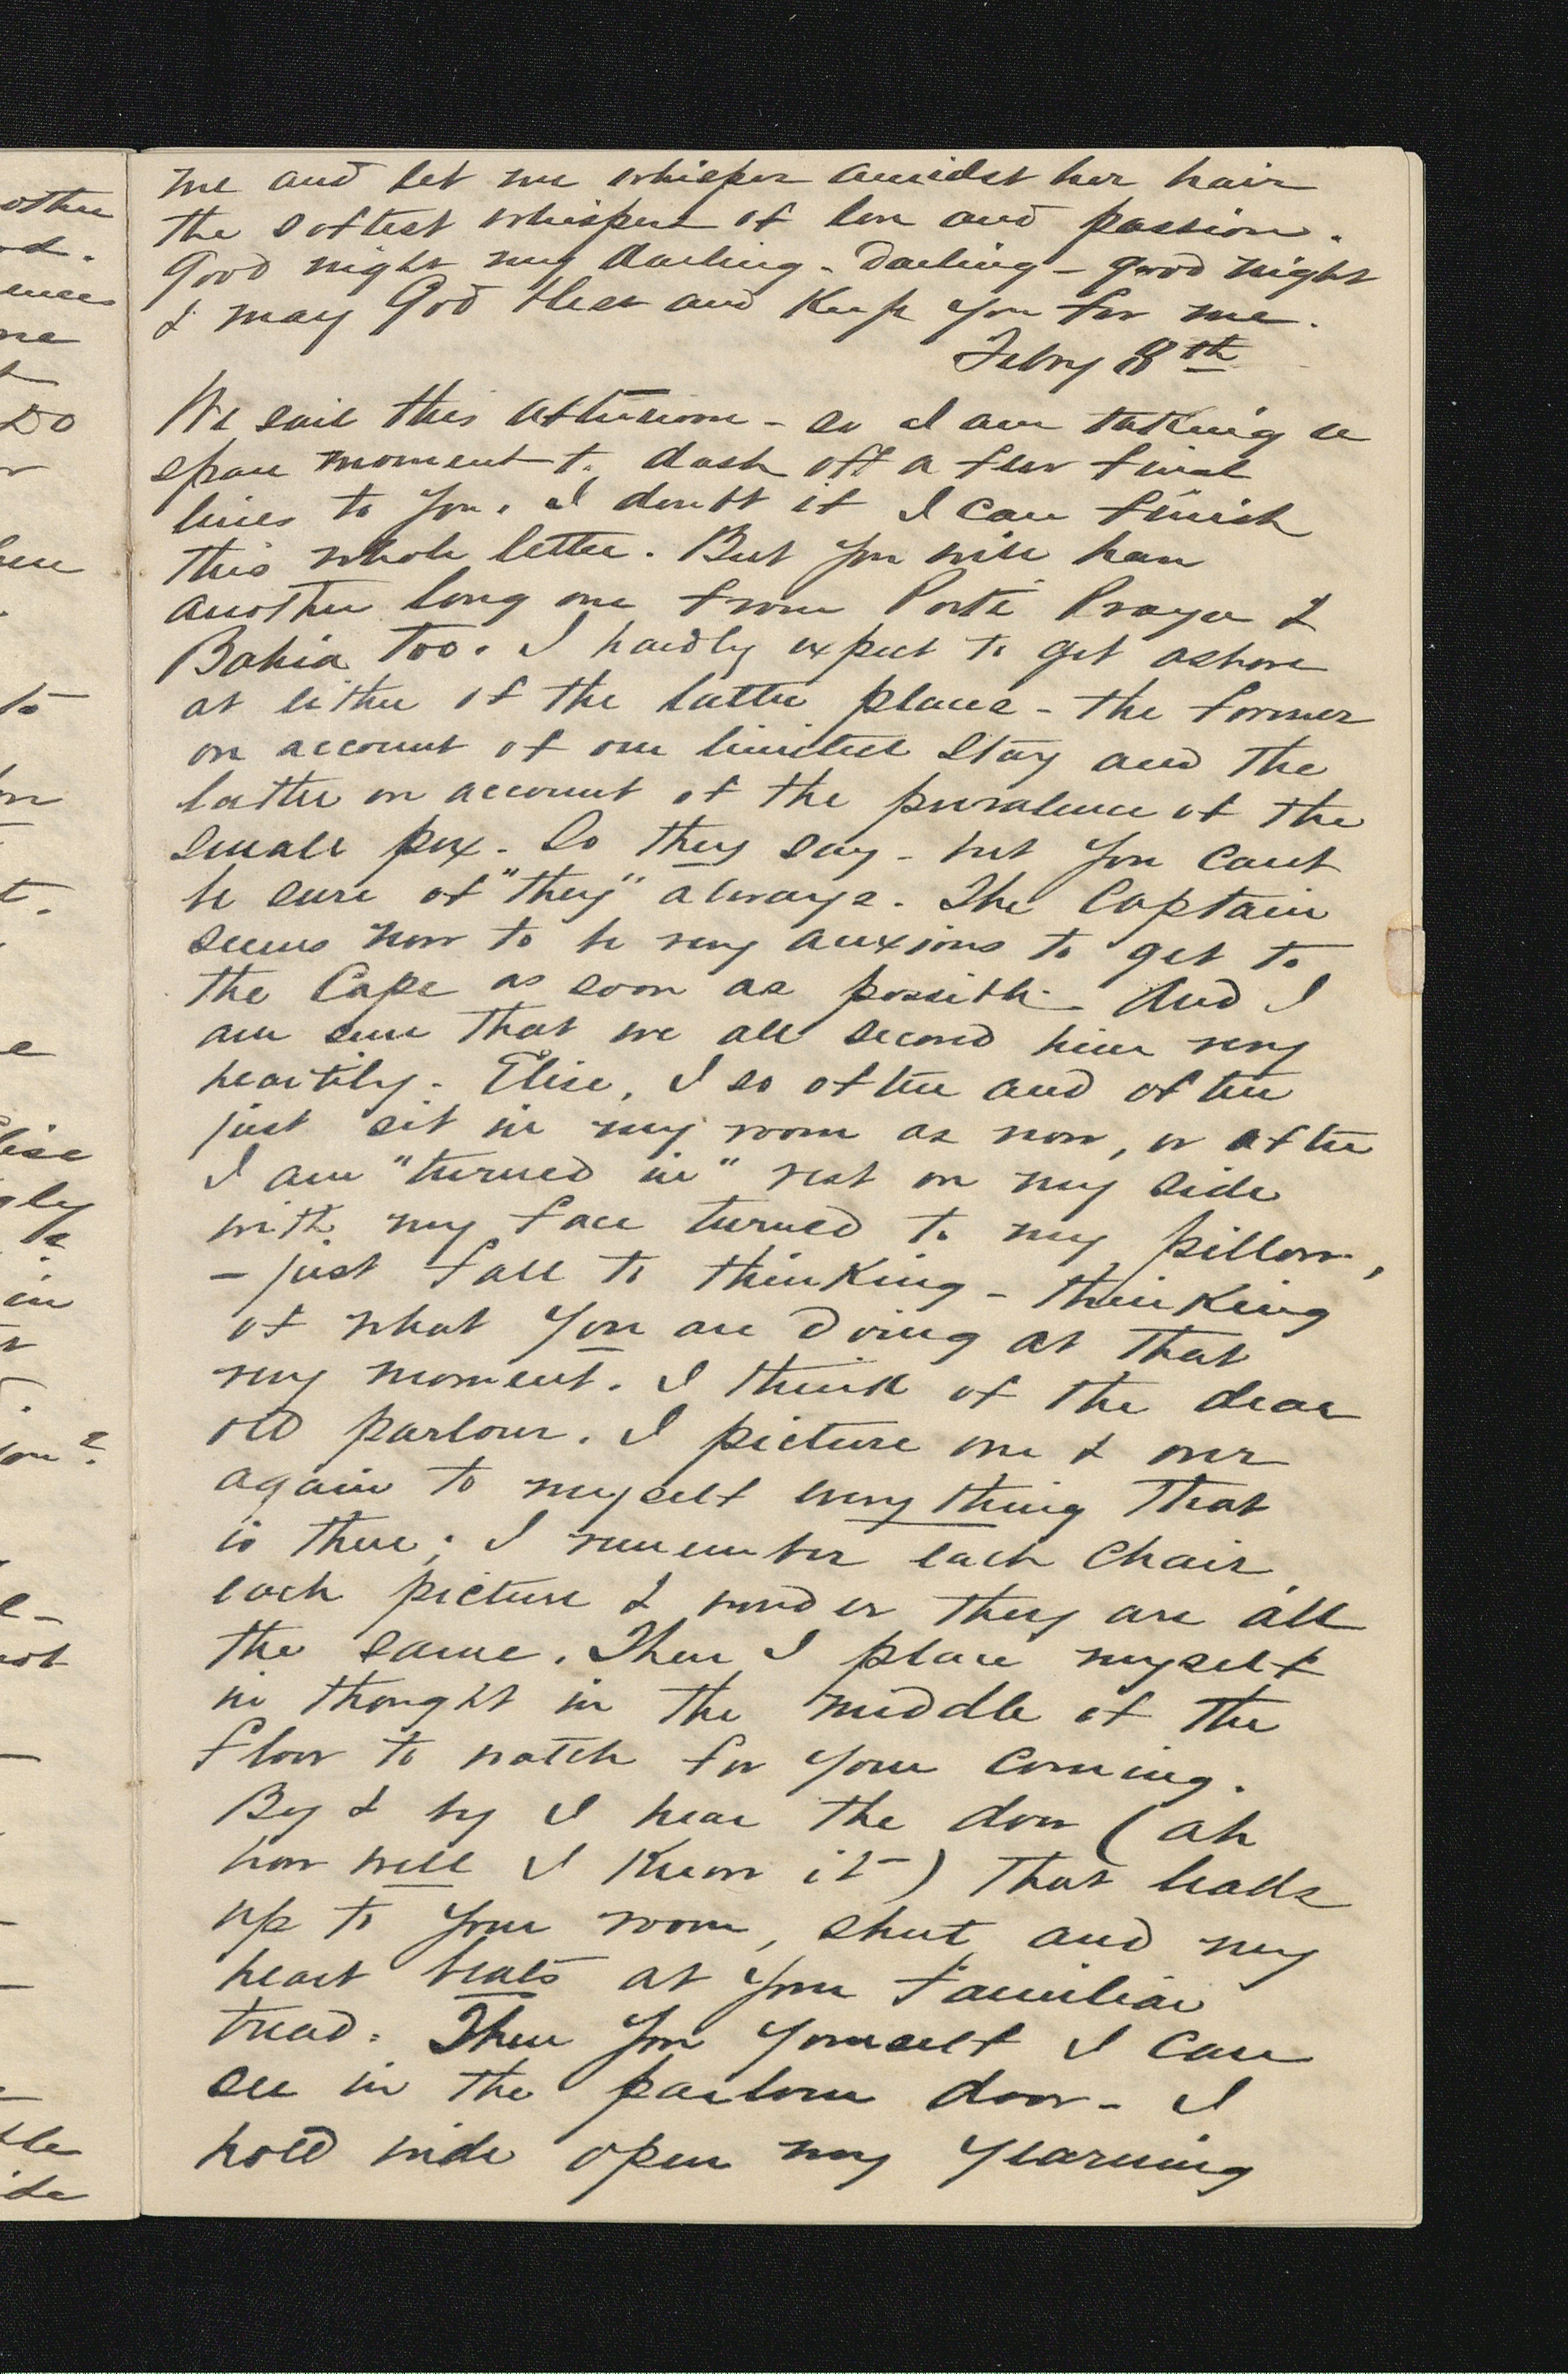 me and let me whisper amidst her hair
the softest whispers of love and passion.
Good night my darling - darling - good night
& may God bless and keep you for me.
Febry 8th
We sail this afternoon - so I am taking a
spare moment to dash off a few final
lines to you. I doubt if I can finish
this whole letter. But you will have
another long one from Porte Praya &
Bahia too. I hardly expect to get ashore
at either of the latter places - the former
on account of our limited stay and the
latter on account of the prevalence of the
small pox. So they say - but you cant
be sure of "they" always. The Captain
seems now to be very anxious to get to
the Cape as soon as possible - And I
am sure that we all second him very
heartily. Elise, I so often and often
just sit in my room as now, or after
I am "turned in" rest on my side
with my face turned to my pillow,
- just fall to thinking - thinking
of what you are doing at that
very moment. I think of the dear
old parlour. I picture over & over
again to myself everything that
is there; I remember each chair,
each picture & wonder they are all
the same. Then I place myself
in thought in the middle of the
floor to watch for your coming.
By & by I hear the door (ah
how well I know it -) that leads
up to your room, shut, and my
heart beats at your familiar
tread. Then you yourself I can
see in the parlour door - I
hold wide open my yearning
other
ne
Do
to
t.
Elise
in
you?
not